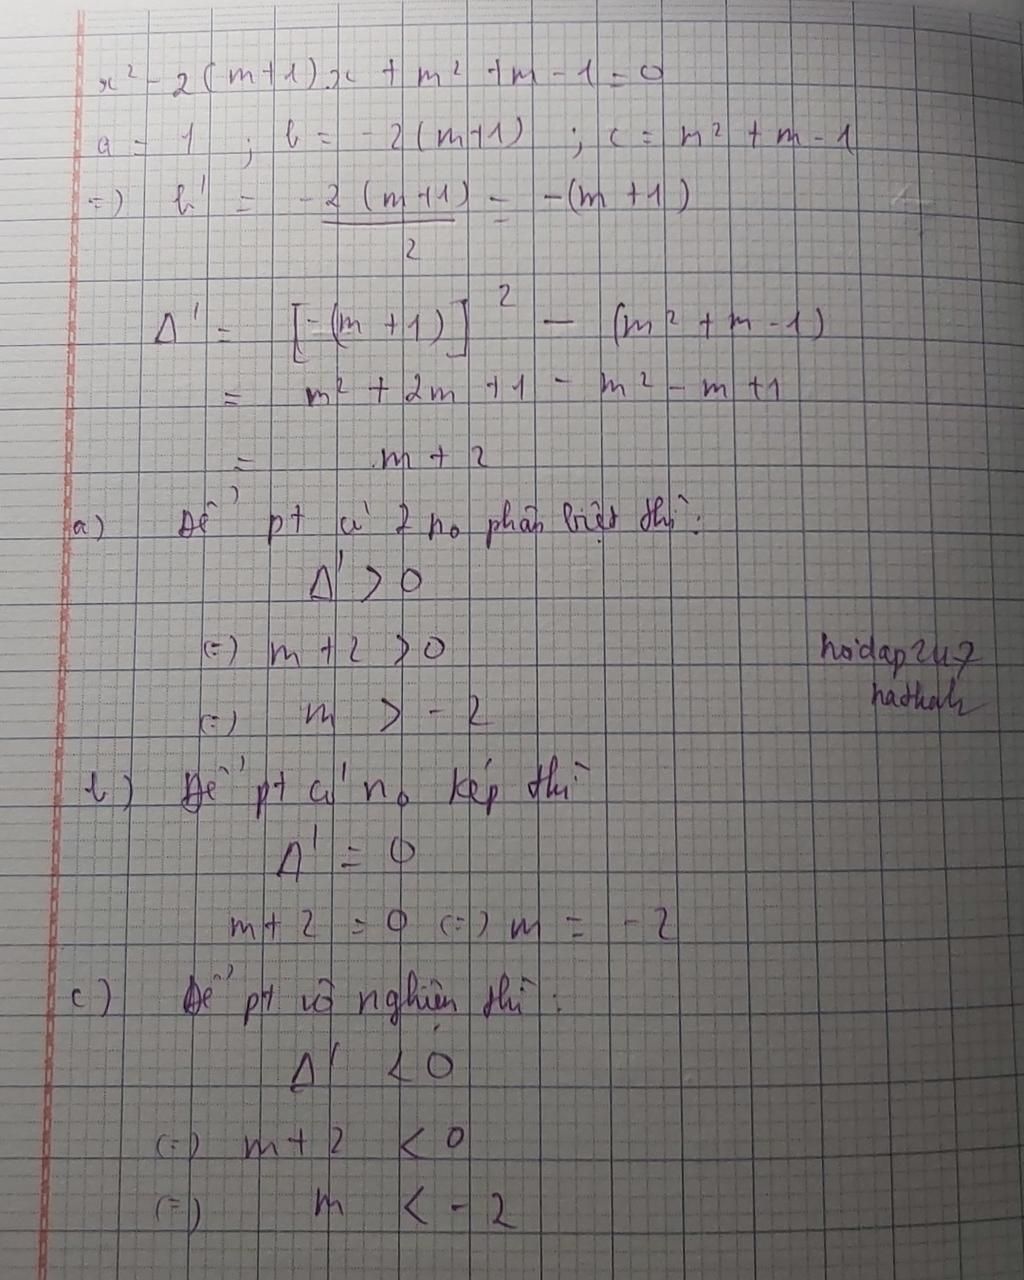 x² - 2(m+1)x + m² + m - 1 = 0
a = 1 ; b = -2(m+1) ; c = m² + m - 1
=) b' = -2(m+1)/2 = -(m+1)
Δ' = [-(m+1)]² - (m² + m - 1)
= m² + 2m + 1 - m² - m + 1
= m + 2
a) Để pt có 2 no phân biệt thì:
Δ' > 0
(=) m + 2 > 0
hoidap247
(=) m > -2
b) Để pt có no kép thì
Δ' = 0
m + 2 = 0 (=) m = -2
c) Để pt vô nghiệm thì:
Δ' < 0
(=) m + 2 < 0
(=) m < -2